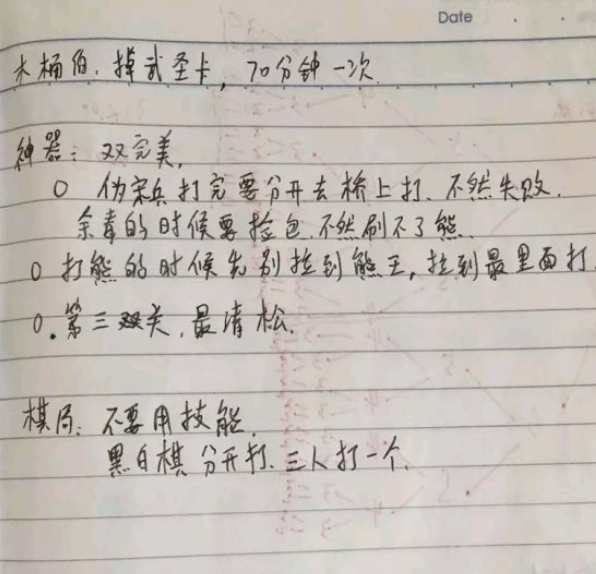 Date
木桶伯.掉武圣卡，70分钟一次.
神器：双完美.
O 伪宋兵打完要分开去桥上打.不然失败.
余毒的时候要捡包.不然刷不了熊.
O 打熊的时候先别拉到熊王，拉到最里面打.
O.第三关.最清松.
棋局：不要用技能.
黑白棋分开打.三人打一个.